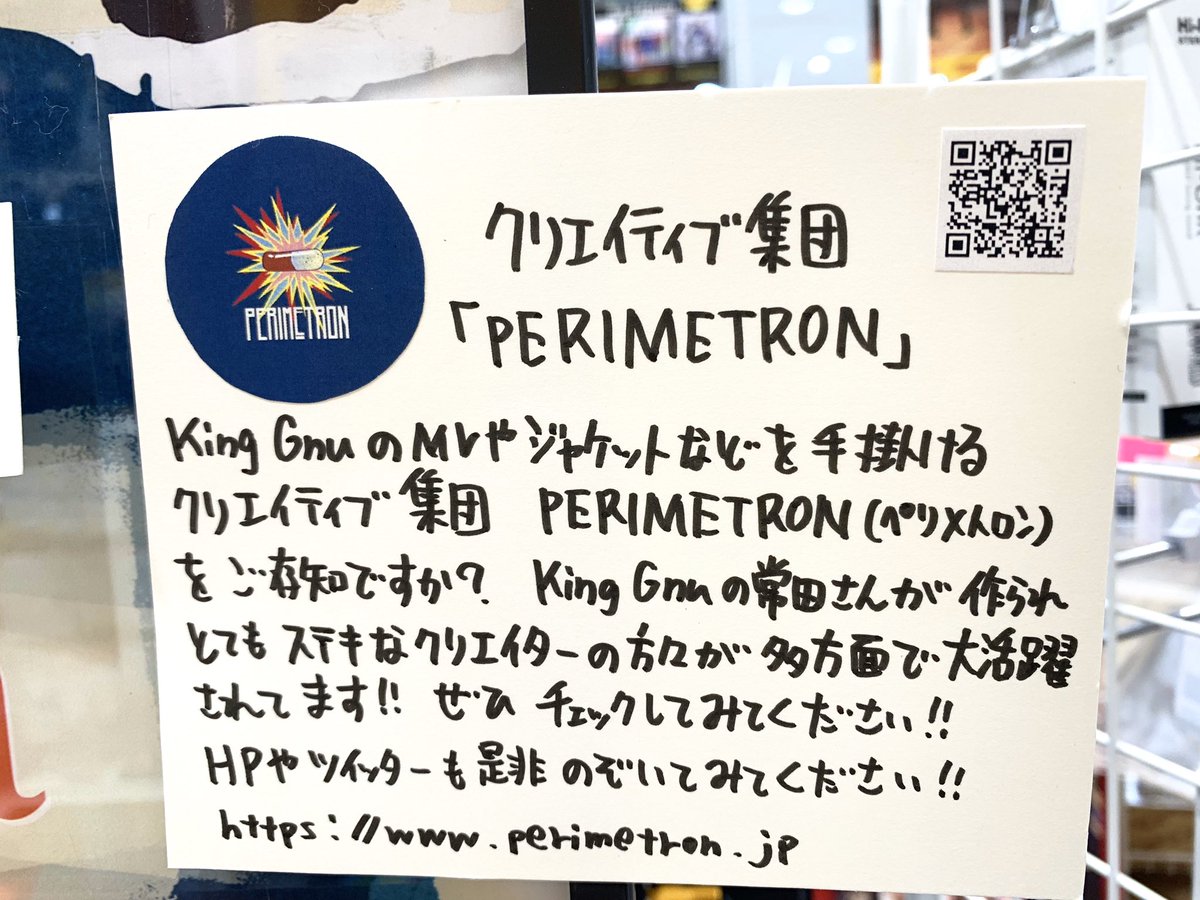 PERIMETRON
クリエイティブ集団
「PERIMETRON」
King GnuのMVやジャケットなどを手掛ける
クリエイティブ集団 PERIMETRON(ペリメトロン)
をご存知ですか? King Gnuの常田さんが作られ
とてもステキなクリエイターの方々が多方面で大活躍
されてます!! ぜひ チェックしてみてください!!
HPやツイッターも是非のぞいてみてください!!
https://www.perimetron.jp